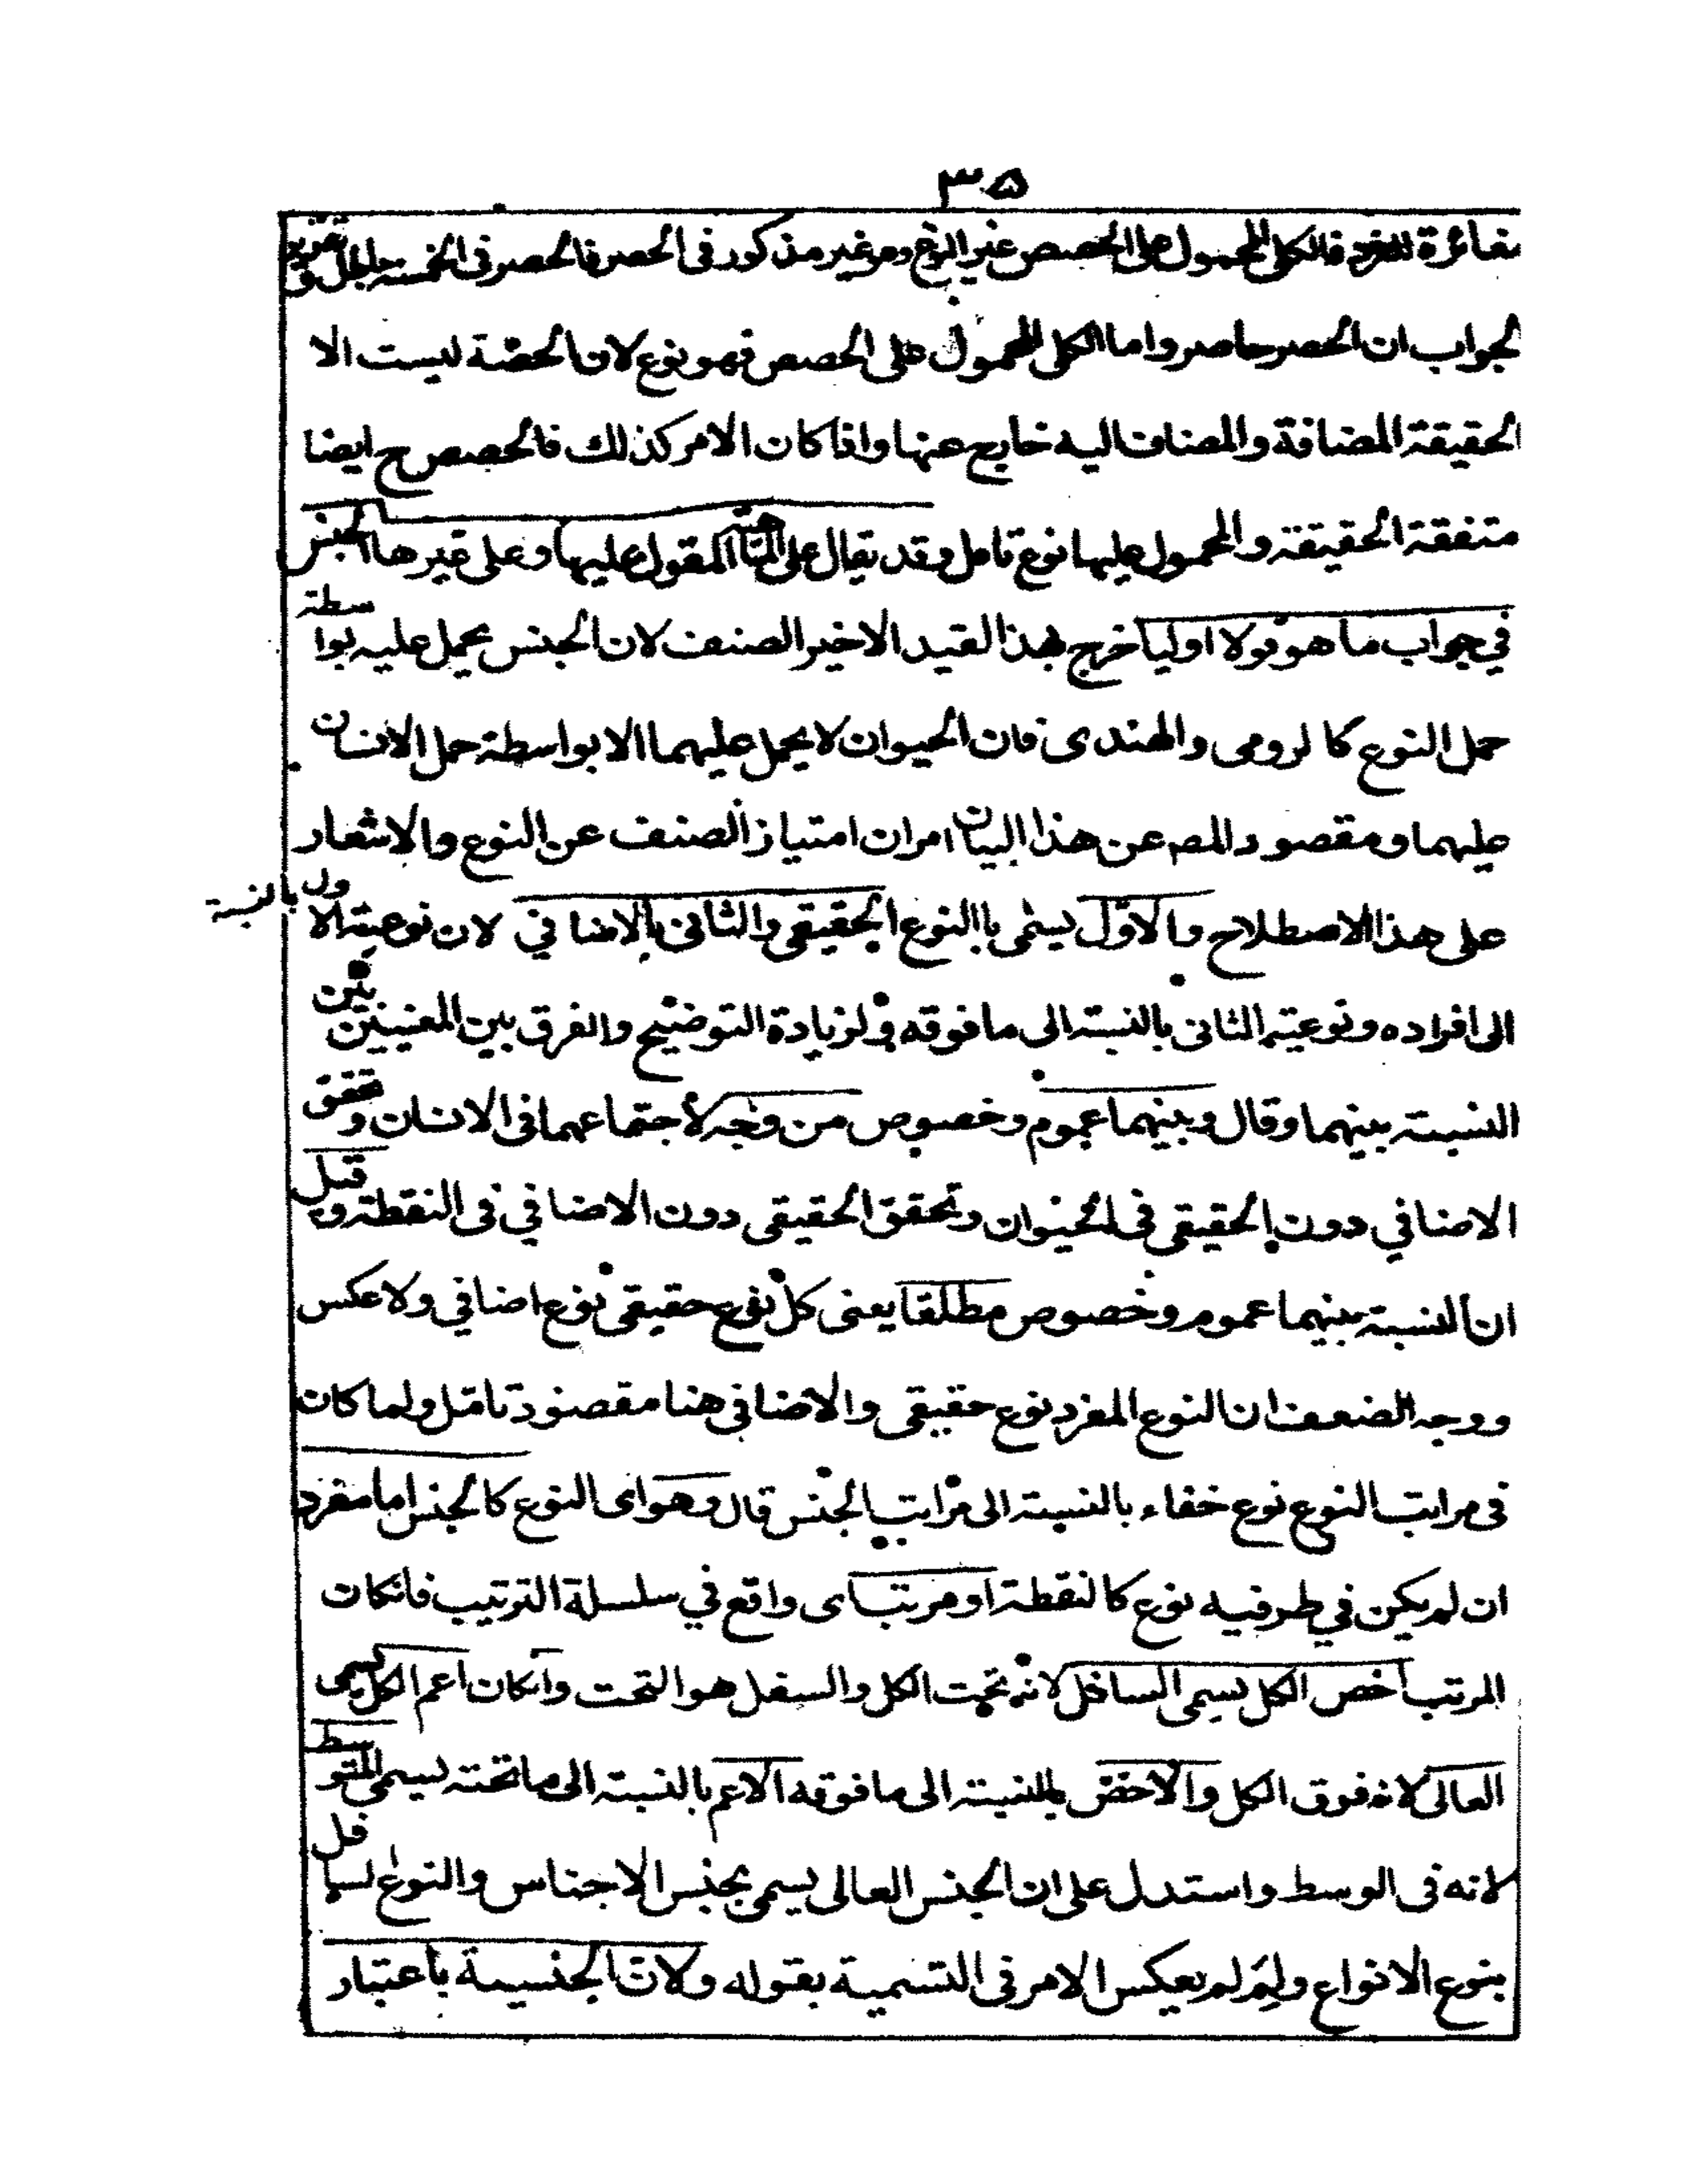 ٣٥
مغائرة للفرد فالكلى المحمول على الحصص غير النوع وهو غير مذكور فى الحصر فالحصر فى الخمسة باطل و
الجواب ان الحصر حاصر واما الكلى المحمول على الحصص فهو نوع لان الحصّة ليست الا
الحقيقة المضافة والمضاف اليه خارج عنها واذا كان الامر كذلك فالحصص ح ايضا
متفقة الحقيقة والمحمول عليها نوع تامل وقد يقال على الماهية المقول عليها وعلى غيرها الجنس
في جواب ما هو قولا اوليا خرج بهذا القيد الاخير الصنف لان الجنس يحمل عليه بواسطة
حمل النوع كا لرومى والهندى فان الحيوان لا يحمل عليهما الا بواسطة حمل الانسان
عليهما ومقصود المصـ عن هذا البيان امران امتياز الصنف عن النوع والاشعار
على هذا الاصطلاح والاوّل يسمّى بالنوع الحقيقى والثانى بالاضافي لان نوعية الاول بالنسبة
الى افراده ونوعية الثانى بالنسبة الى ما فوقه ولزيادة التوضيح والفرق بين المعنيين بيّن
النسبة بينهما وقال وبينهما عموم وخصوص من وجه لاجتماعهما فى الانسان وتحقق
الاضافي دون الحقيقى فى الحيوان وتحقق الحقيقى دون الاضافي فى النقطة وقيل
ان النسبة بينهما عموم وخصوص مطلقا يعنى كل نوع حقيقى نوع اضافي ولا عكس
ووجه الضعف ان النوع المفرد نوع حقيقى والاضافى هنا مقصود تامّل ولما كان
فى مراتب النوع نوع خفاء بالنسبة الى مراتب الجنس قال وهو اى النوع كالجنس اما مفرد
ان لم يكن في طرفيه نوع كالنقطة او مرتب اى واقع في سلسلة الترتيب فانكان
المرتب اخص الكل يسمى السافل لانه تحت الكل والسفل هو التحت وانكان اعم الكل يسمى
العالى لانه فوق الكل والاخصّ بالنسبة الى ما فوقه الاعم بالنسبة الى ما تحته يسمى المتوسط
لانه فى الوسط واستدل على ان الجنس العالى يسمى بجنس الاجناس والنوع السافل
بنوع الانواع ولِمَ لم يعكس الامر فى التسمية بقوله ولان الجنسية باعتبار